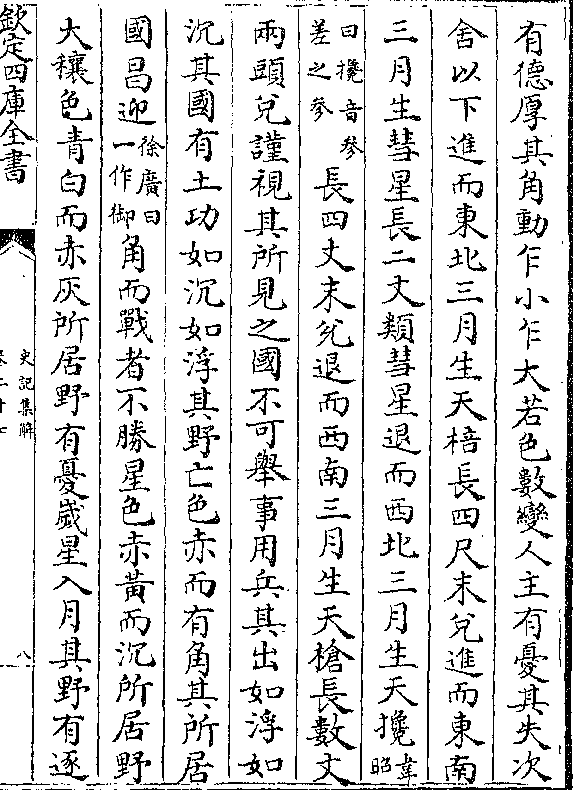 有德厚其角動乍小乍大若色數變人主有憂其失次
舍以下進而東北三月生天棓長四尺末兌進而東南
三月生彗星長二丈類彗星退而西北三月生天攙韋昭
曰攙音參差之參長四丈末兌退而西南三月生天槍長數丈
兩頭兌謹視其所見之國不可舉事用兵其出如浮如
沉其國有土功如沉如浮其野亡色赤而有角其所居
國昌迎徐廣曰一作御角而戰者不勝星色赤黃而沉所居野
大穰色青白而赤灰所居野有憂歲星入月其野有逐
欽定四庫全書
史記集解
卷二十七
八